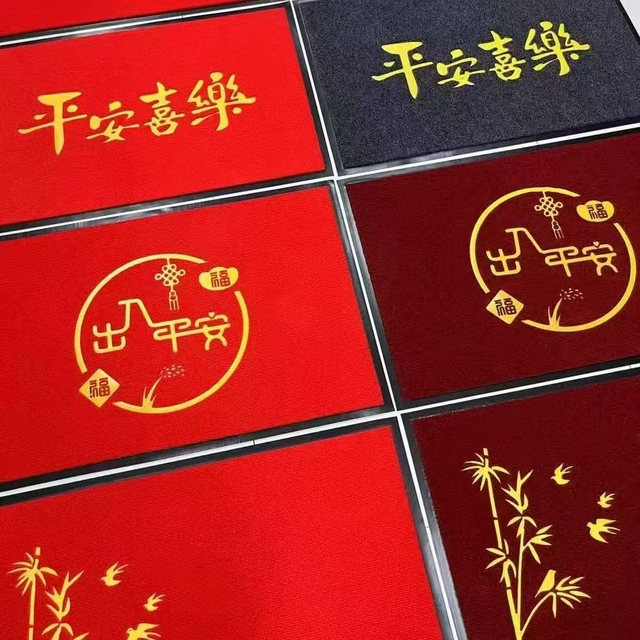 平安喜樂
平安喜樂
福
出入平安
福
福
出入平安
福